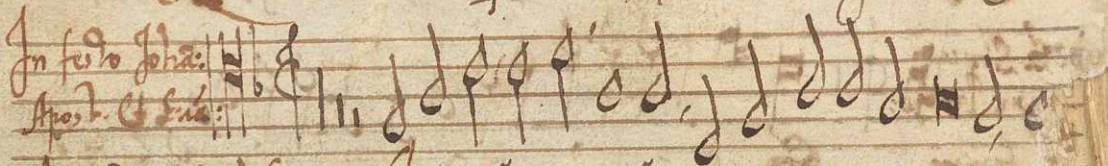 In festo Johā:
Apost. Et